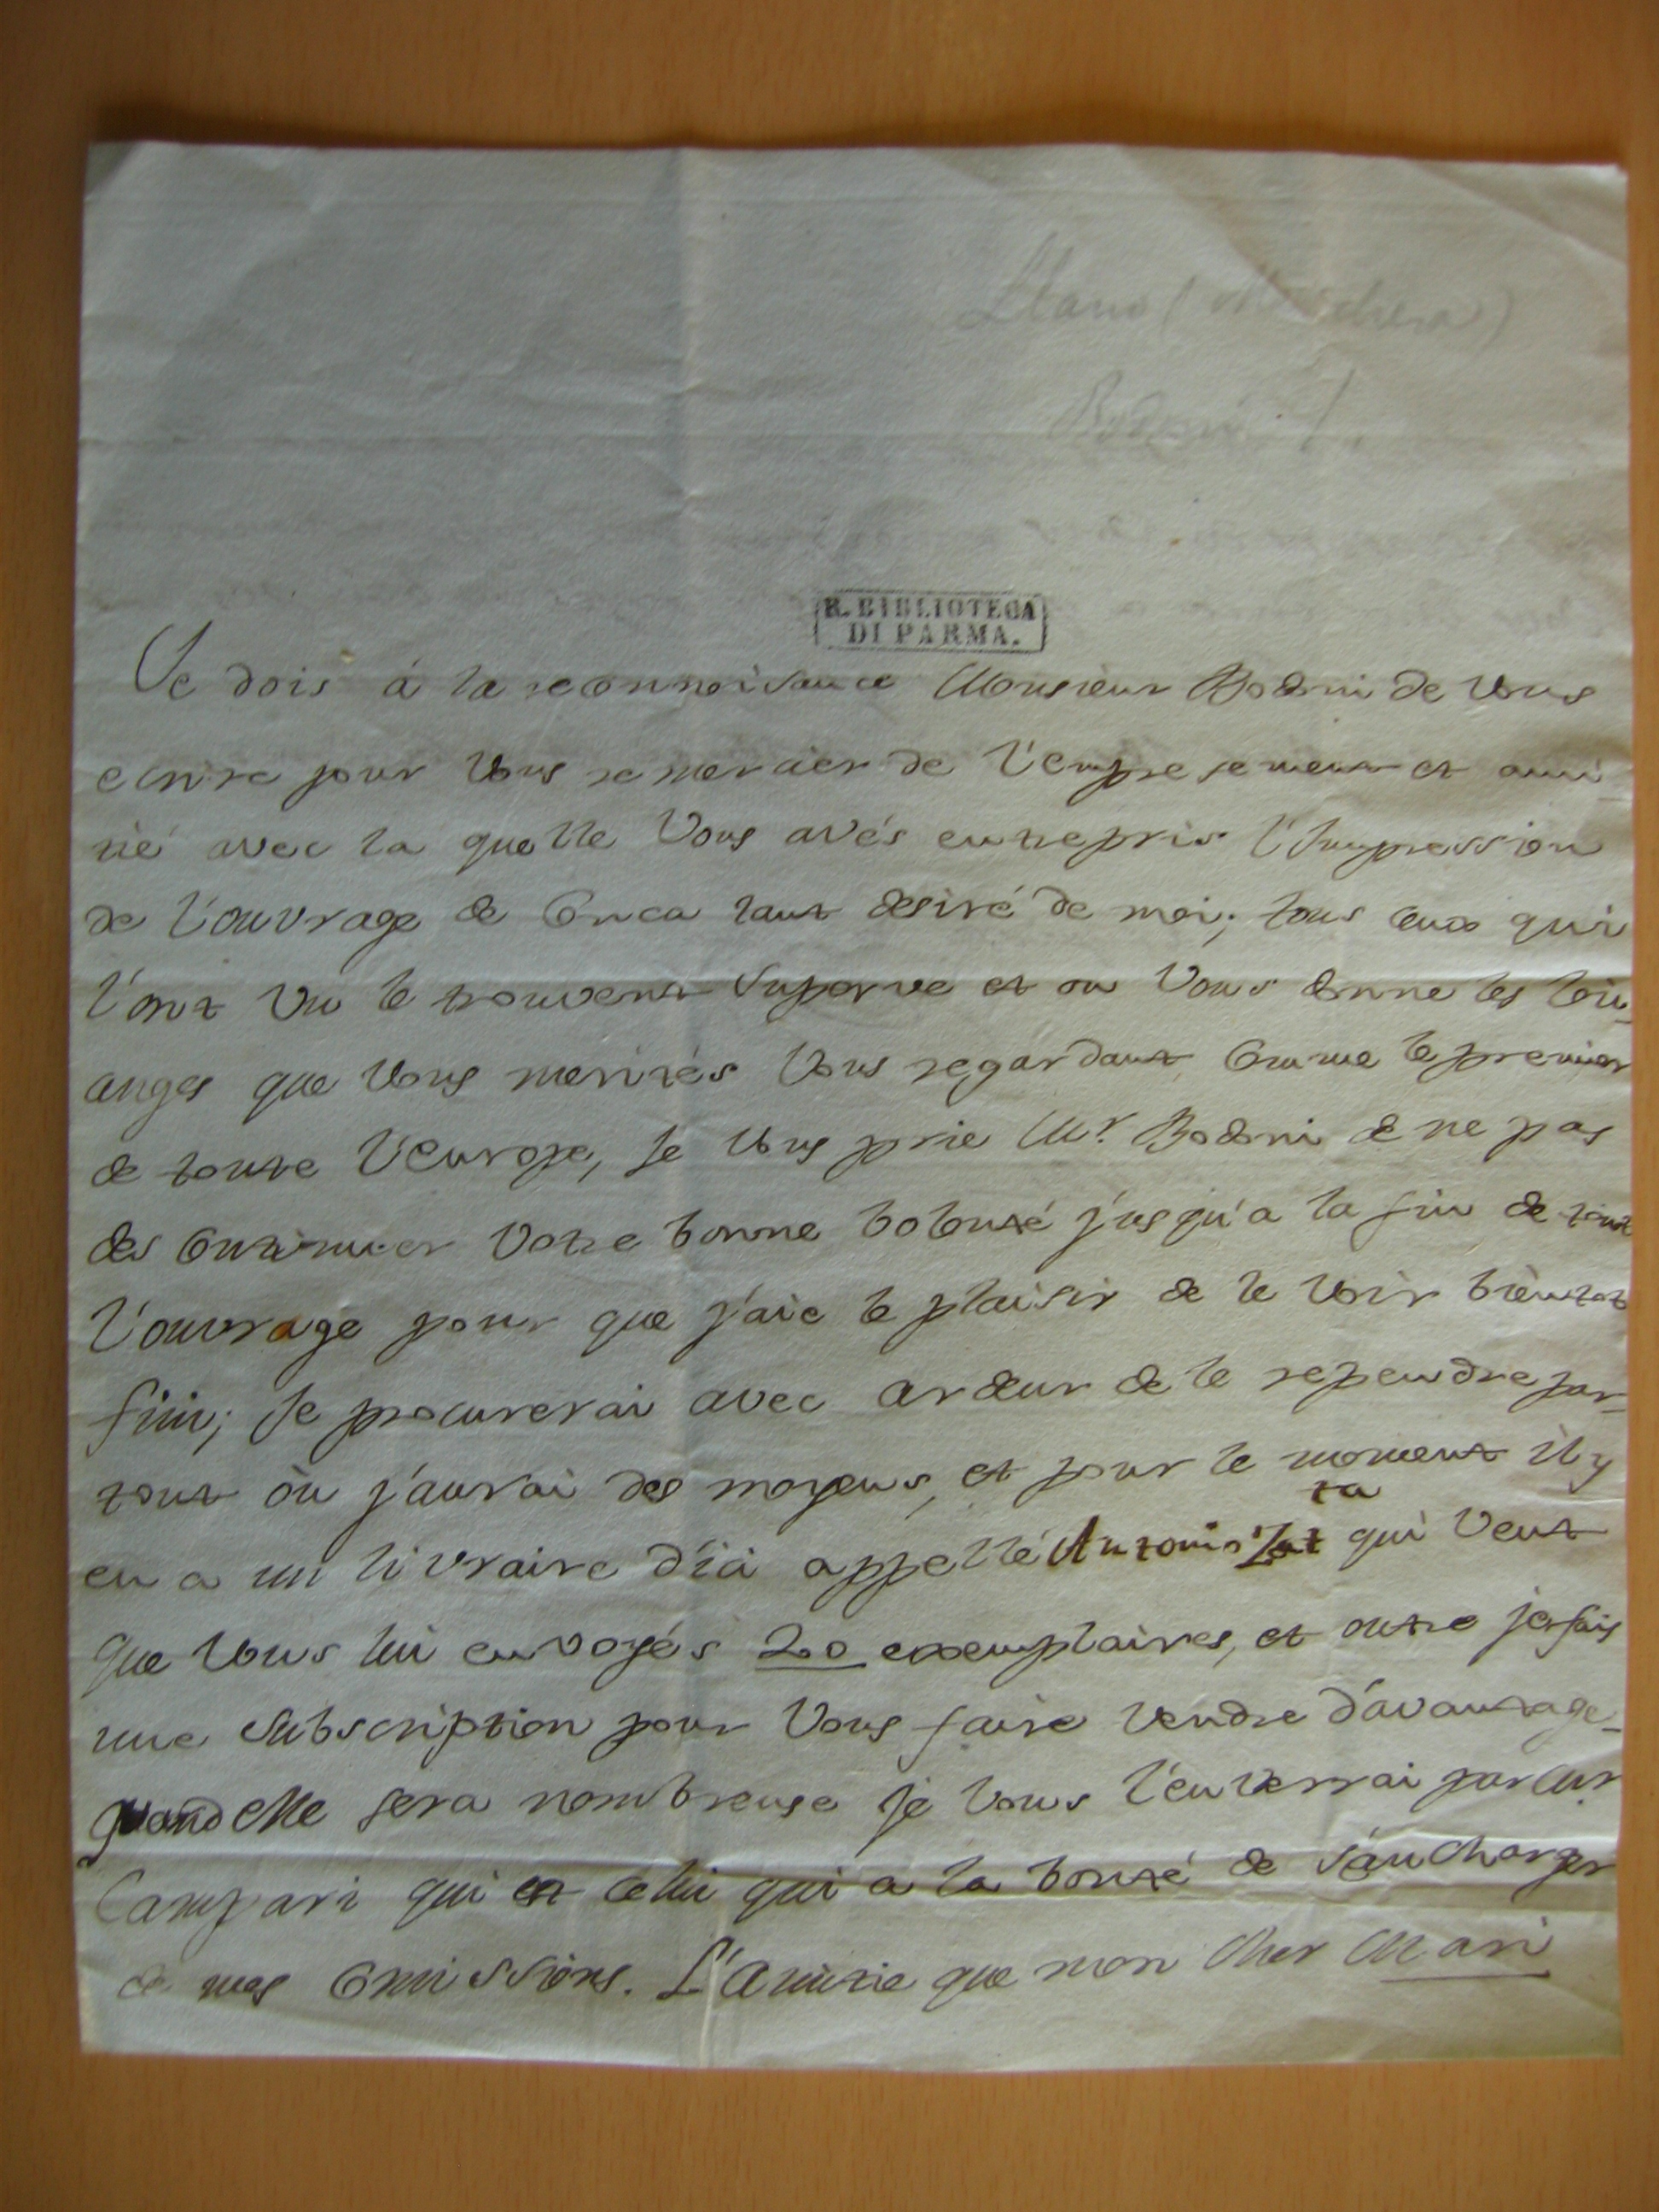 Llano (
Bodoni
R. BIBLIOTECA
DI PARMA.
Je dois á la reconnoisance Monsieur Bodoni de Vous
ecrire pour Vous remercier de l'empresement et ami-
tié avec la quelle Vous avés entrepris l'Impression
de l'ouvrage de Conca tant desiré de moi; tous ceux qui
l'ont vu le trouvent superve et on Vous donne les lou-
anges que Vous merités Vous regardant comme le premier
de toute l'Europe, Je Vous prie Mr. Bodoni de ne pas
des continuer Votre bonne bolonté j'usqu'a la fin de tout
l'ouvrage pour que j'aie le plaisir de le Voir bientot
fini; Je procurerai avec ardeur de le rependre par-
tout où j'aurai des moyens, et pour le moment il y
en a un livraire d'ici appellé Antonio qui Veut
que Vous lui envoyés 20 exemplaires, et outre je fais
une subscription pour Vous faire Vendre d'avantage-
quand elle sera nombreuse je Vous l'enverrai par Mr.
Campari qui est celui qui a la bonté de s'an charger
de mes comissions. L'Amitie que mon cher Mari